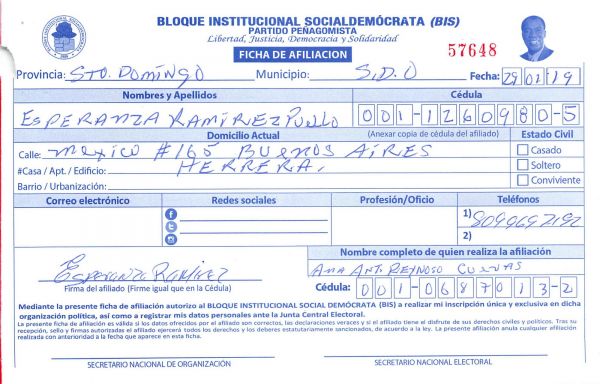 BLOQUE INSTITUCIONAL SOCIALDEMÓCRATA (BIS)
PARTIDO PEÑAGOMISTA
Libertad, Justicia, Democracia y Solidaridad
FICHA DE AFILIACION
57648
Provincia: STO. DOMINGO Municipio: S.D.O Fecha: 29/01/19
Nombres y Apellidos Cédula
ESPERANZA RAMIREZ 001-1260980-5
Domicilio Actual (Anexar copia de cédula del afiliado) Estado Civil
Calle: Mexico #165 BUENOS AIRES Casado
#Casa / Apt. / Edificio: HERRERA. Soltero
Barrio / Urbanización: Conviviente
Correo electrónico Redes sociales Profesión/Oficio Teléfonos
1) 8096692192
2)
Nombre completo de quien realiza la afiliación
Esperanza Ramirez ANA ANT. REYNOSO CUEVAS
Firma del afiliado (Firme igual que en la Cédula) Cédula: 001-0687013-2
Mediante la presente ficha de afiliación autorizo al BLOQUE INSTITUCIONAL SOCIAL DEMÓCRATA (BIS) a realizar mi inscripción única y exclusiva en dicha
organización política, así como a registrar mis datos personales ante la Junta Central Electoral.
La presente ficha de afiliación es válida si los datos ofrecidos por el afiliado son correctos, las declaraciones veraces y si el afiliado tiene el disfrute de sus derechos civiles y políticos. Tras su
recepción, sello y firmas autorizadas el afiliado ejercerá todos los derechos y los deberes estatutariamente sancionados, de acuerdo a la ley. La presente afiliación anula cualquier afiliación
realizada con anterioridad a la fecha que aparece en esta ficha.
SECRETARIO NACIONAL DE ORGANIZACIÓN SECRETARIO NACIONAL ELECTORAL